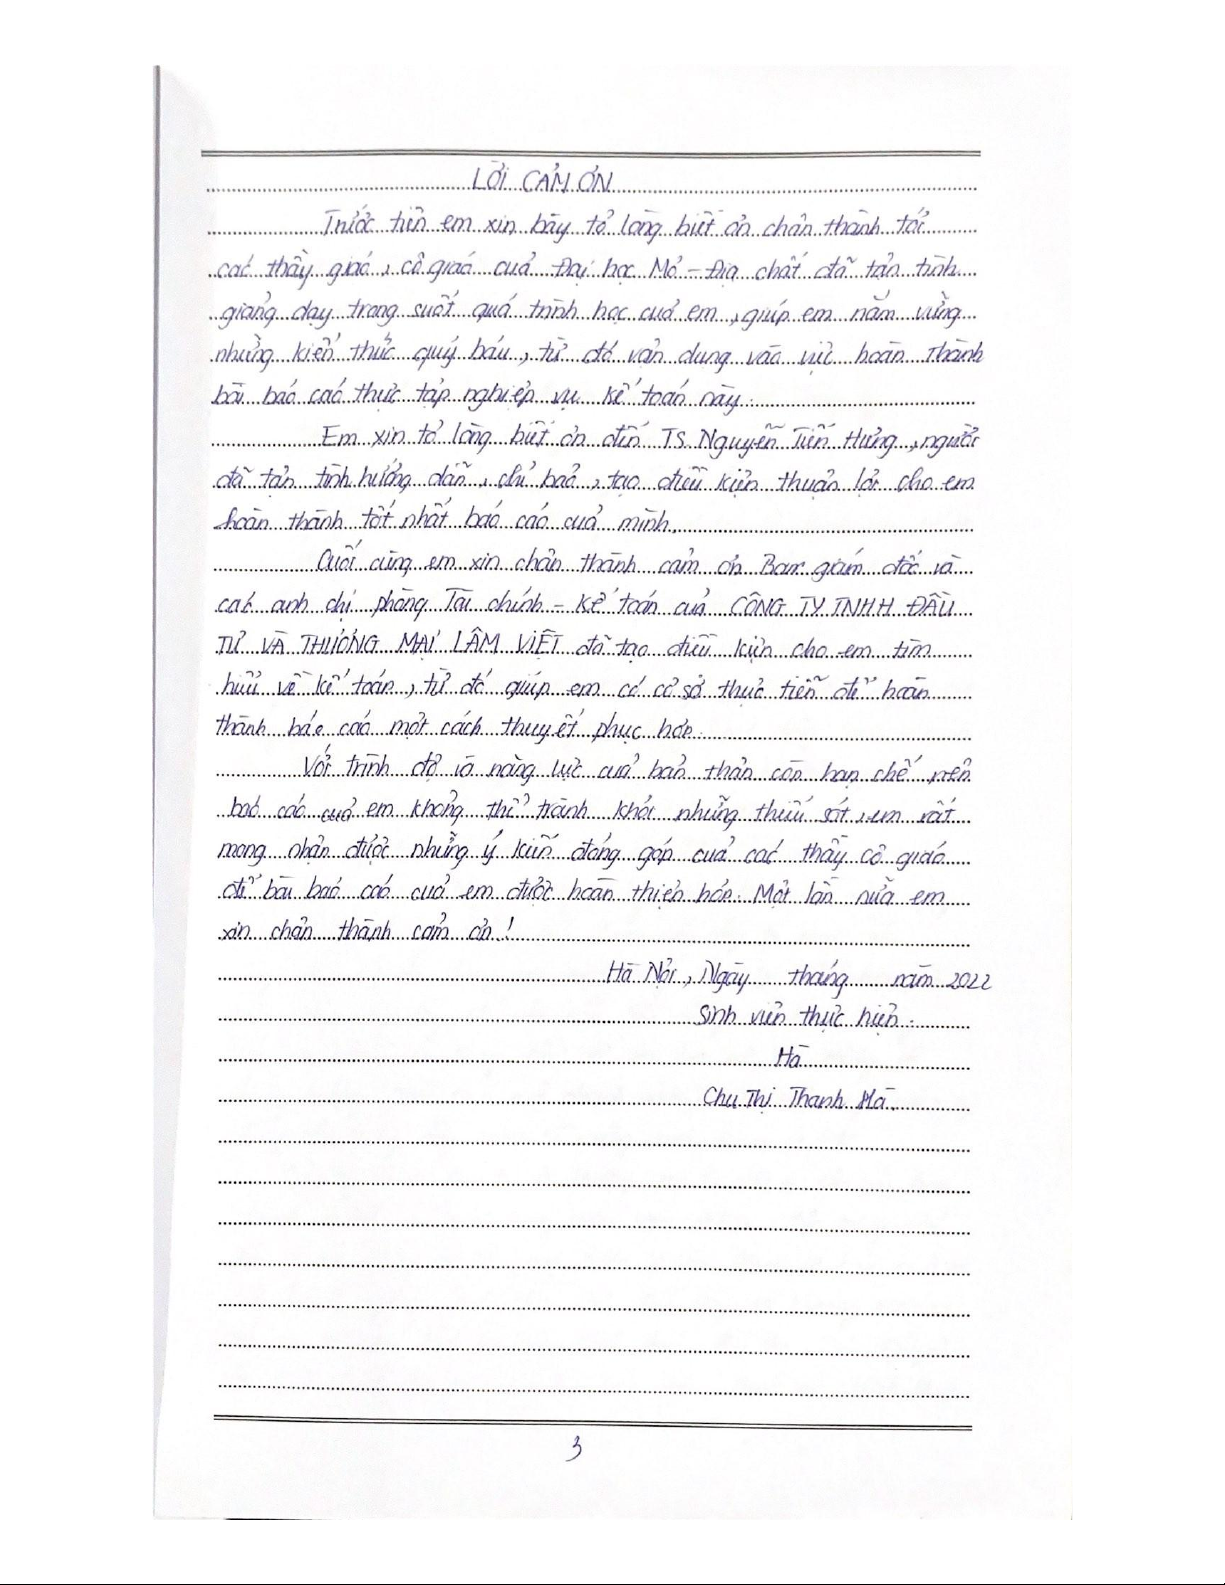 LỜI CẢM ƠN
Trước tiên em xin bày tỏ lòng biết ơn chân thành tới
các thầy giáo, cô giáo của Đại học Mỏ - Địa chất đã tận tình
giảng dạy trong suốt quá trình học của em, giúp em nắm vững
những kiến thức quý báu, từ đó vận dụng vào việc hoàn thành
bài báo cáo thực tập nghiệp vụ kế toán này.
Em xin tỏ lòng biết ơn đến TS. Nguyễn Tiến Hưng, người
đã tận tình hướng dẫn, chỉ bảo, tạo điều kiện thuận lợi cho em
hoàn thành tốt nhất báo cáo của mình.
Cuối cùng em xin chân thành cảm ơn Ban giám đốc và
các anh chị phòng Tài chính - Kế toán của CÔNG TY TNHH ĐẦU
TƯ VÀ THƯƠNG MẠI LÂM VIỆT đã tạo điều kiện cho em tìm
hiểu về kế toán, từ đó giúp em có cơ sở thực tiễn để hoàn
thành báo cáo một cách thuyết phục hơn.
Với trình độ và năng lực của bản thân còn hạn chế nên
báo cáo của em không thể tránh khỏi những thiếu sót, em rất
mong nhận được những ý kiến đóng góp của các thầy cô giáo
để bài báo cáo của em được hoàn thiện hơn. Một lần nữa em
xin chân thành cảm ơn!
Hà Nội, Ngày tháng năm 2022
Sinh viên thực hiện.
Hà
Chu Thị Thanh Hà.
3